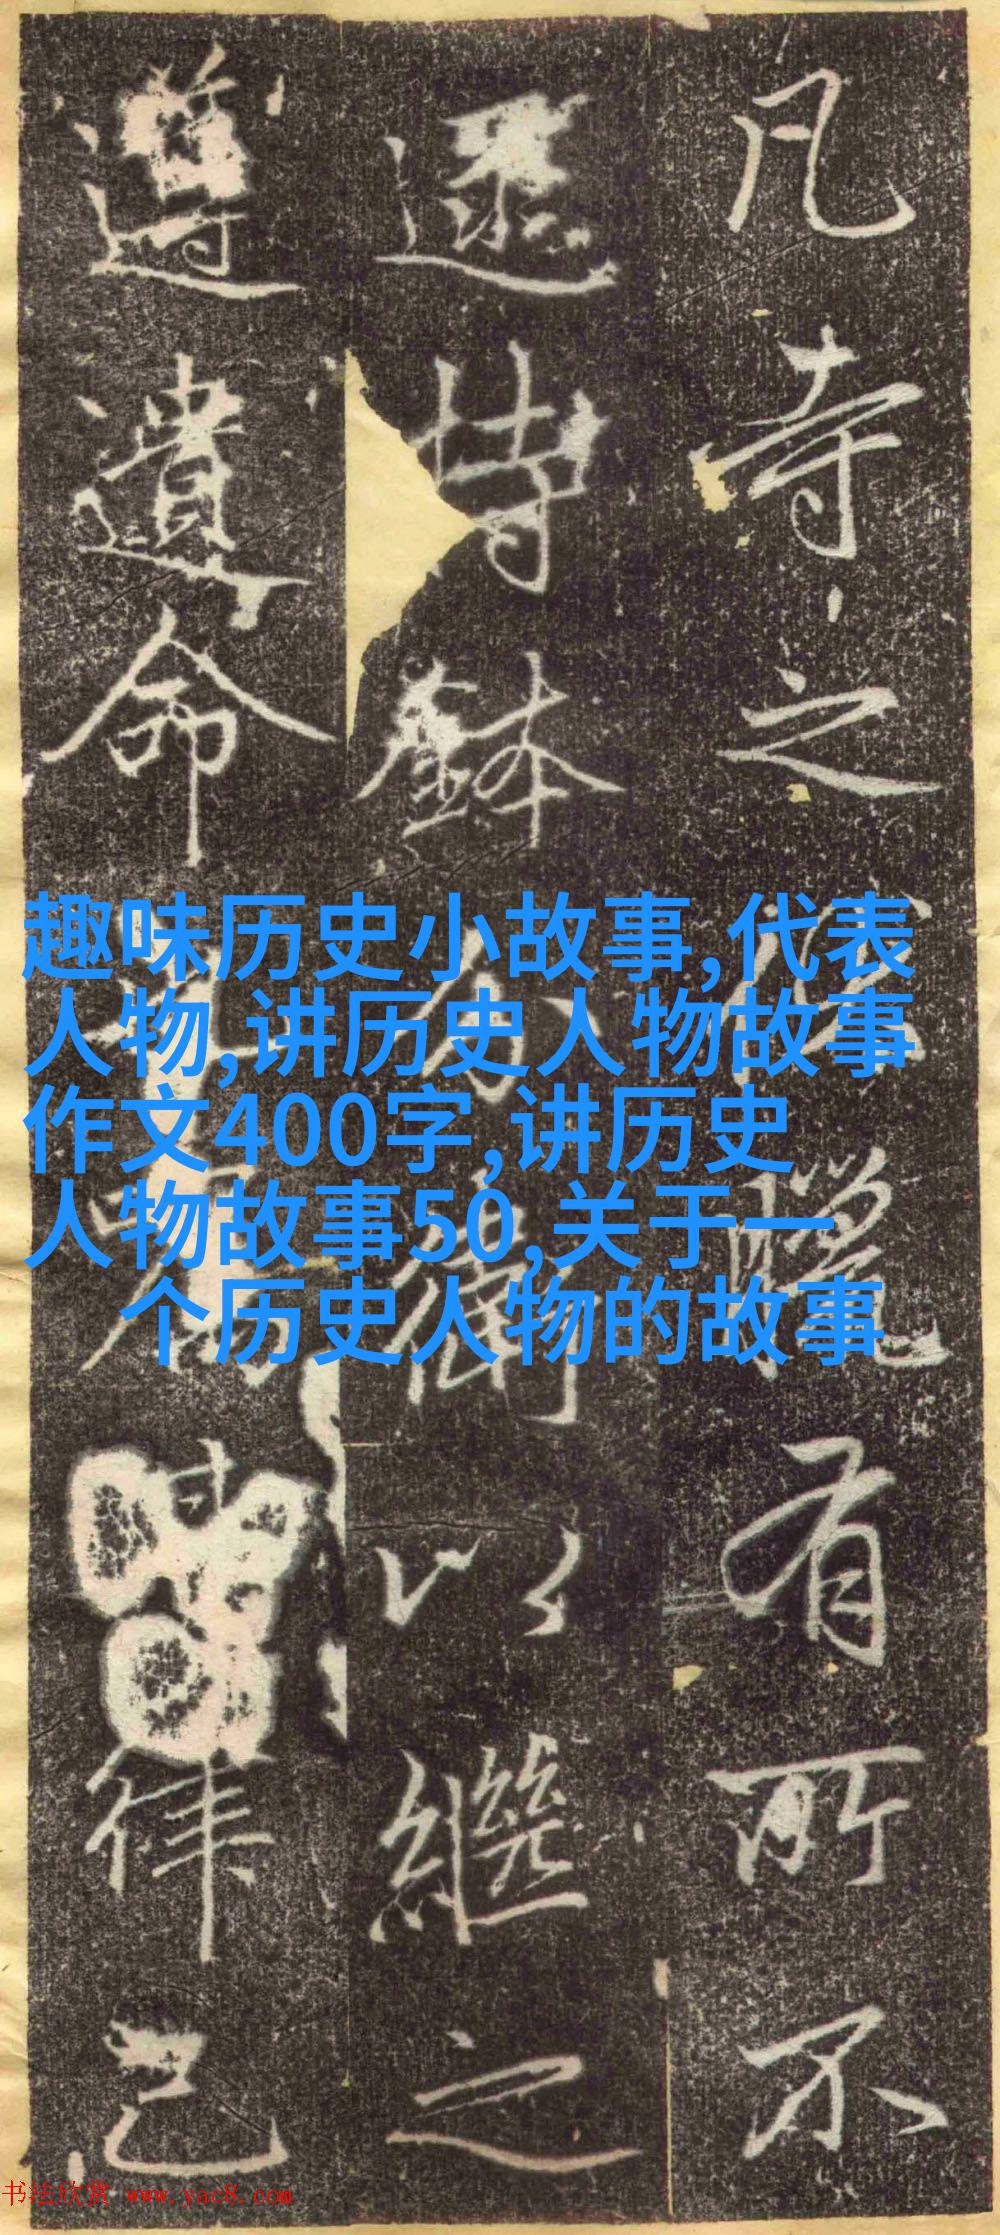 凡寺之
有所不
遝持鉢
以繼之
遵遺命
律己
趣味历史小故事,代表
人物,讲历史人物故事
作文400字,讲历史
人物故事50,关于一
个历史人物的故事
书法欣赏 www.yac8.com